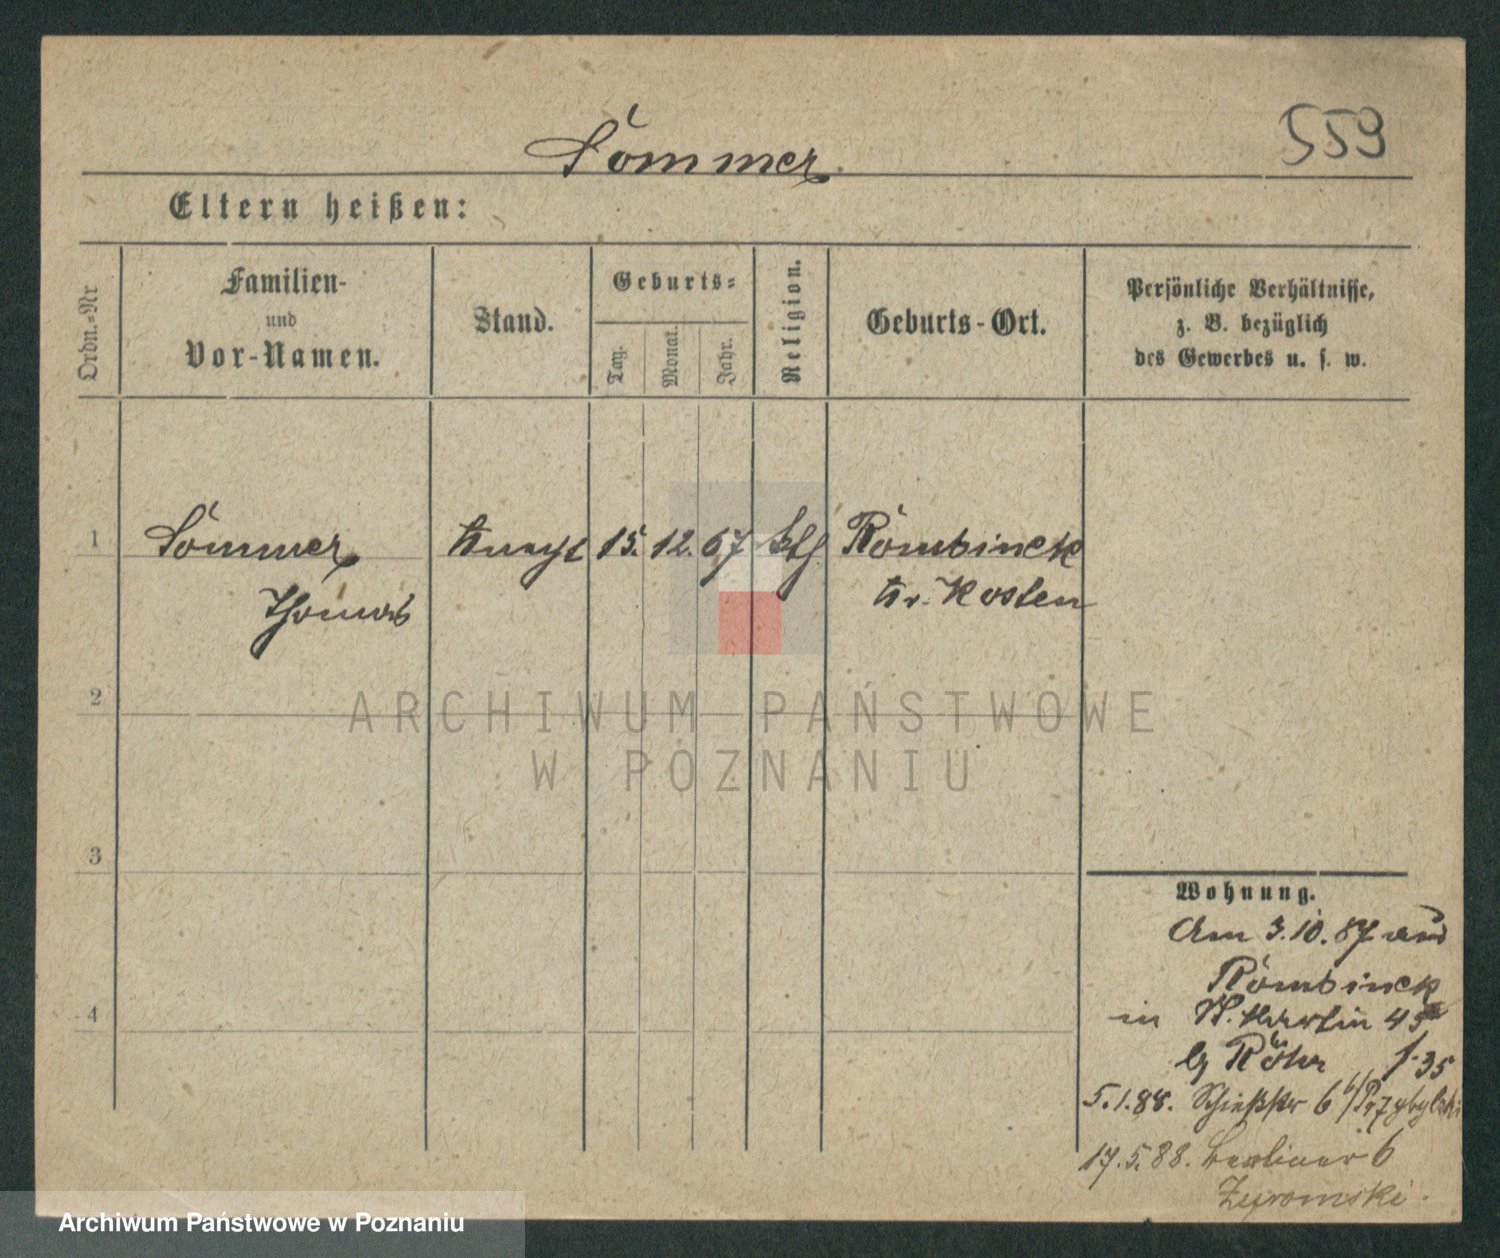 Sommer.
559
Eltern heißen:
Ordn.-Nr
Familien-
und
Vor-Namen.
Stand.
Geburts-
Tag.
Monat.
Jahr.
Religion.
Geburts-Ort.
Persönliche Verhältnisse,
z. B. bezüglich
des Gewerbes u. s. w.
1
Sommer
Knecht
15.
12.
67
kth.
Rombinek
Thomas
Kr. Kosten
ARCHIWUM PAŃSTWOWE
W POZNANIU
2
3
4
Wohnung.
Am 3.10.87 aus
Rombinek
in St. Martin 45
by Röhr
5.1.88. Schießstr 6 b/Przybylski
17.5.88. Berliner 6
Zyromski.
Archiwum Państwowe w Poznaniu